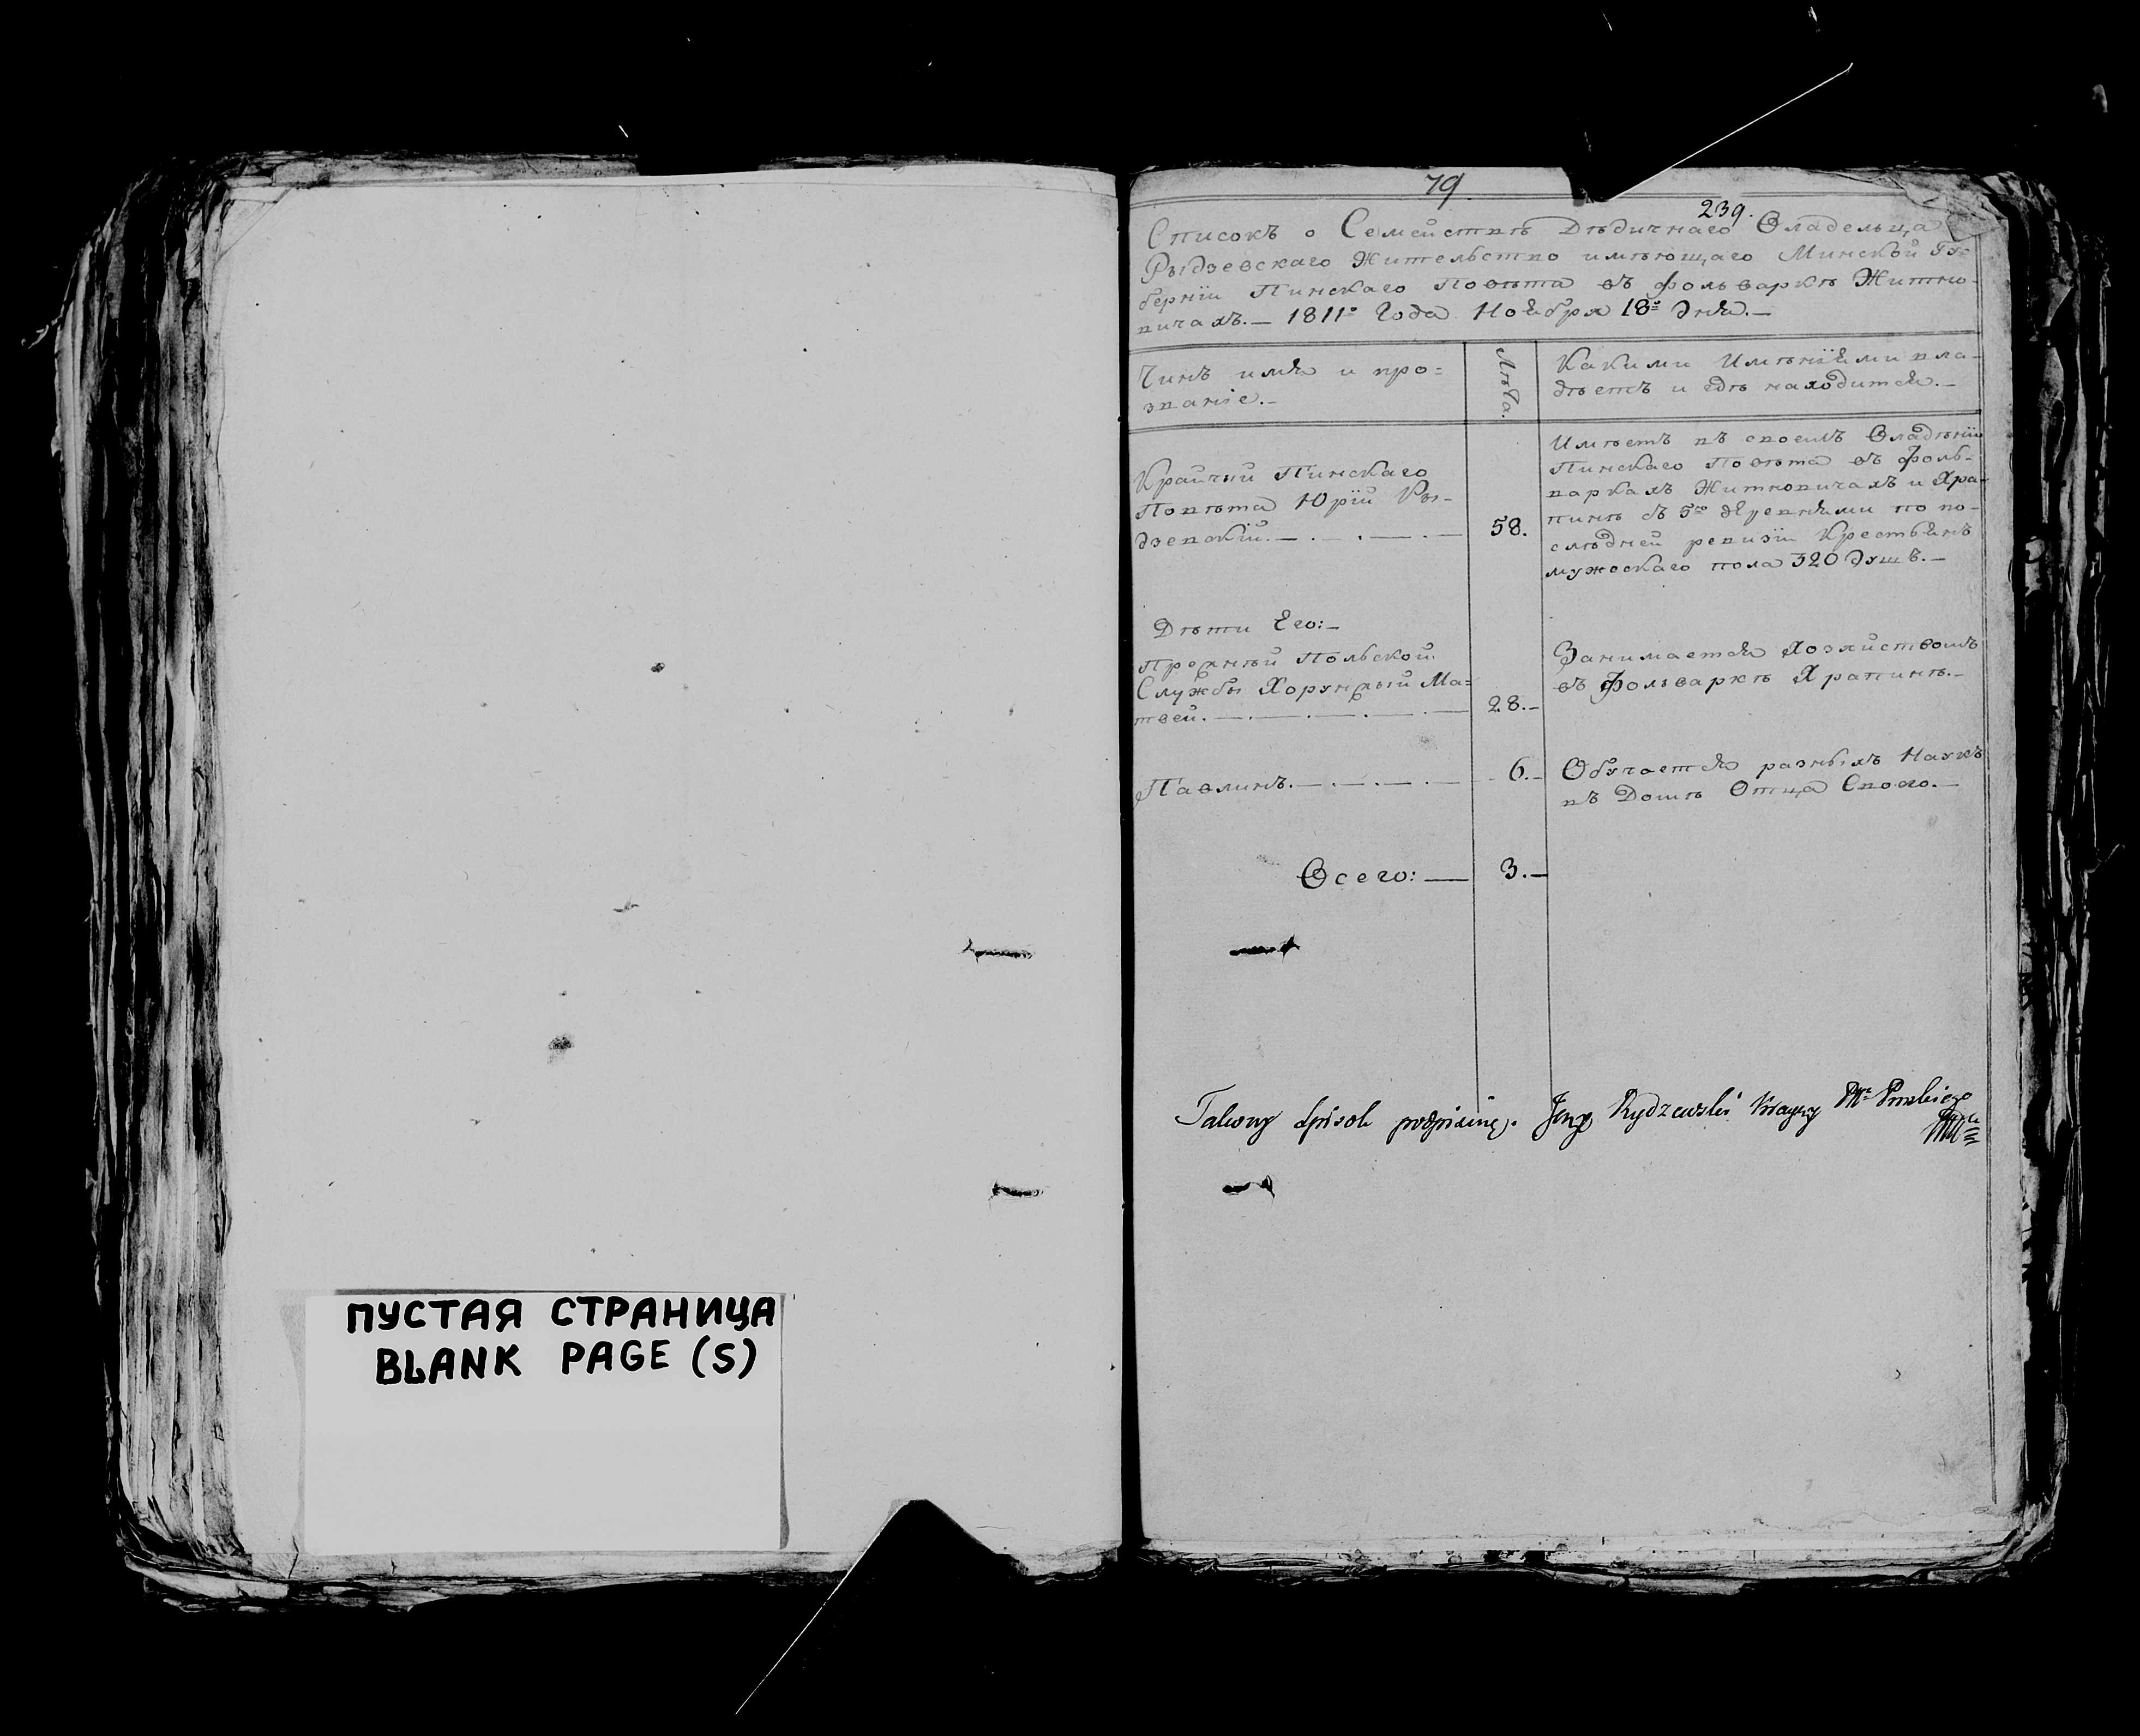 79
239.
Списокъ о Семействѣ Дѣдичнаго Владельца
Рыдзевскаго Жительство имѣющаго Минской Гу-
берніи Пинскаго Повѣта въ фольваркѣ Житно-
вичахъ.— 1811º Года Ноября 18º дня.—
Чинъ имя и про=
званіе.—
Лѣта.
Какими Имѣніями вла-
дѣетъ и гдѣ находится.—
Крайчий Пинскаго
Повѣта Юрій Ры-
дзевскій.—.—.—.—
58.
Имѣетъ въ своемъ Владѣніи
Пинскаго Повѣта въ фоль-
варкахъ Житновичахъ и Хра-
пинѣ съ 5ю деревнями по по-
слѣдней ревизіи Крестьянъ
мужескаго пола 320 душъ.—
Дѣти Его:—
Прежней Польской
Службы Хорунжый Ма=
твей.—.—.—.—.—
28.—
Занимается Хозяйствомъ
въ фольваркѣ Храпинѣ.—
Павлинъ.—.—.—.—
6.—
Обучается разныхъ Наукъ
въ Домѣ Отца Своего.—
Всего:—
3.—
Takowy spisok podpisuię. Jerzy Rydzewski Krayczy Ptu Pinskiego
ПУСТАЯ СТРАНИЦА
BLANK PAGE (S)